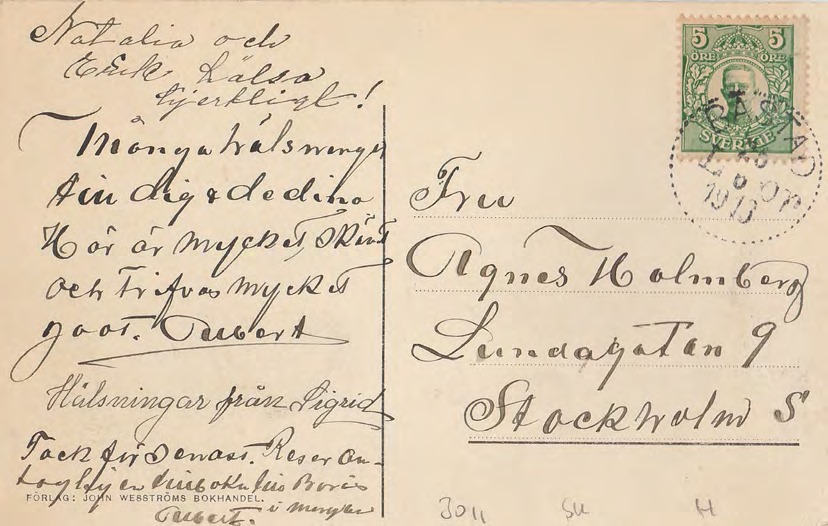 Natalia och
Erik hälsa
hjertligt!
Många hälsningar
din dig & de dina
Här är mycket skönt
och trifvas mycket
godt.
Hälsningar från Sigrid
Tack för senast. Reser an-
FÖRLAG: JOHN WESSTRÖMS BOKHANDEL.
i morgon
5 5
ÖRE ÖRE
SVERIGE
BÅSTAD
6
1913
Fru
Agnes Holmberg
Lundagatan 9
Stockholm S
3011